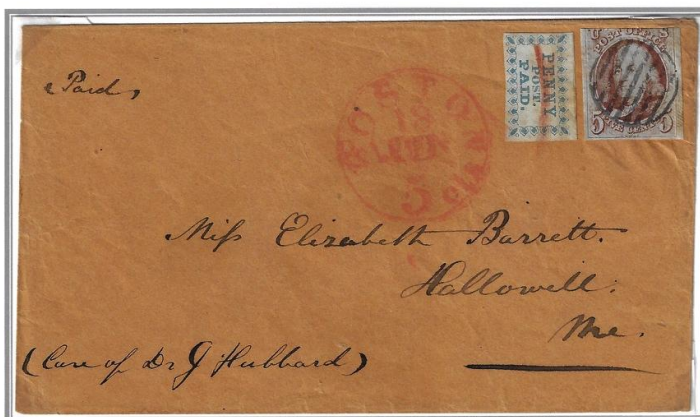 Paid,
PENNY
POST.
PAID.
POST OFFICE
5 5
BOSTON
18
JUN
5 cts
Miss Elizabeth Barrett.
Hallowell.
Me.
(Care of Dr G Hubbard)